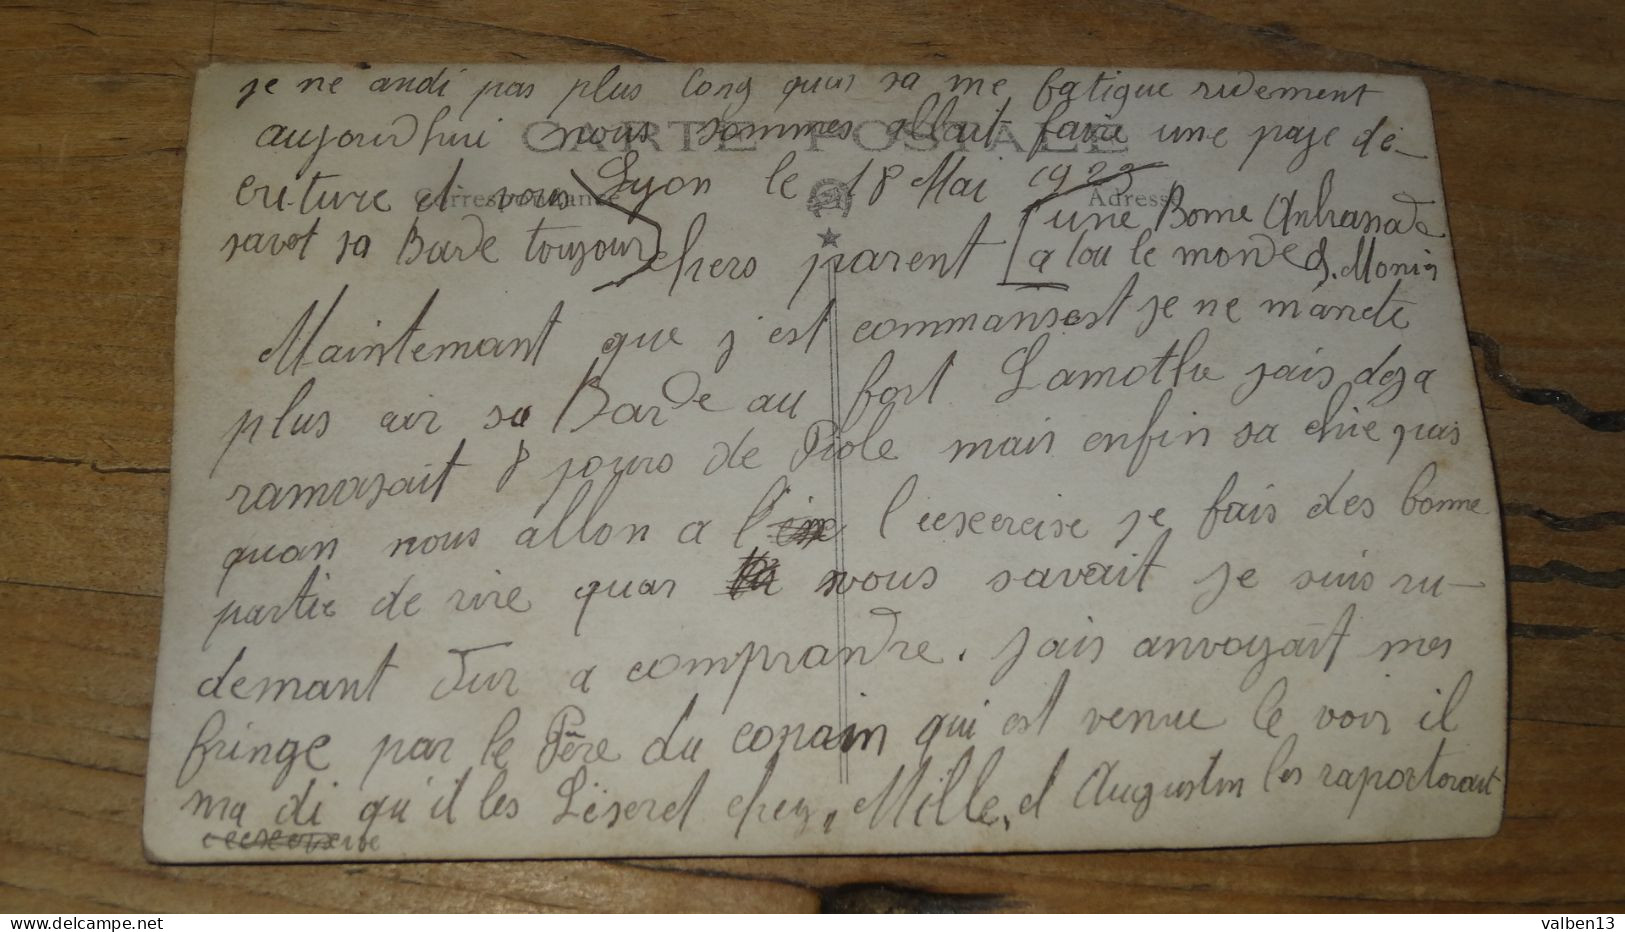 je ne andi pas plus long quar sa me fatigue rudement
aujourdhui nous sommes allait faire une page dé-
criture et vous
savot sa Barde toujour
CARTE POSTALE
Correspondance
Adresse
Lyon le 18 Mai 1922
chers parent
une Bonne Anbrassade
a tou le monde J. Monin
Maintemant que j'est commansest je ne m'ancte
plus air sa Barde au fort Lamothe jais deja
ramasait 8 jours de Piole mais enfin sa chie pas
quan nous allon a l' l'eexercise je fais des bonne
partie de rire quar vous savait je suis ru-
demant dur a comprandre. jais anvoyait mes
fringe par le Père du copain qui est venue le voir il
ma di qu'il les Lëseret chez Mille, d Augustin les raportorait
valben13